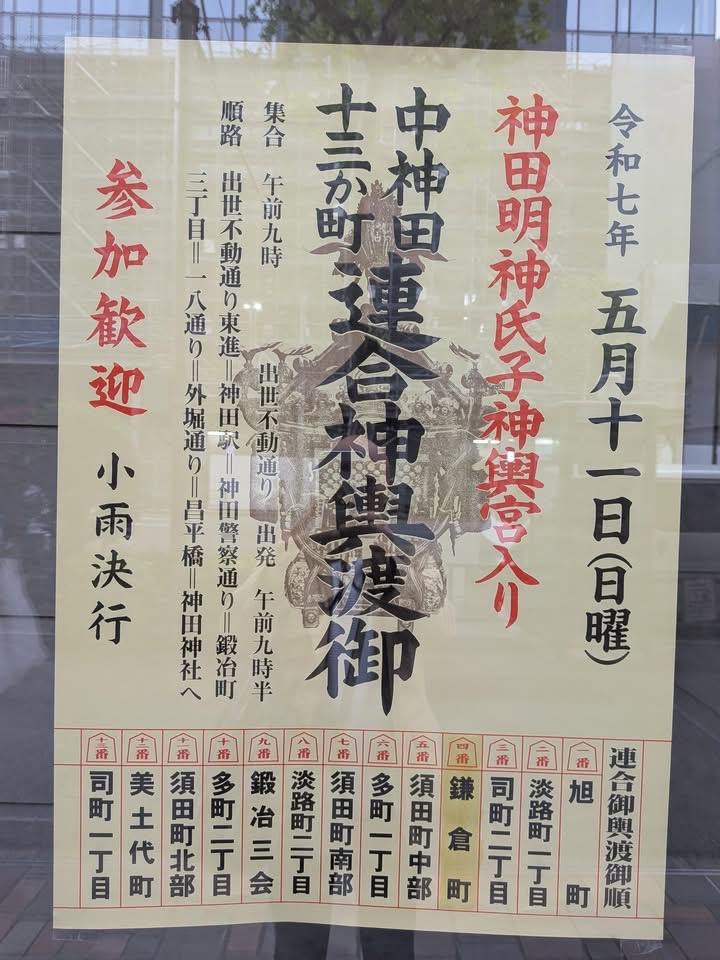 令和七年 五月十一日(日曜)
神田明神氏子神輿宮入り
中神田
十三か町
連合神輿渡御
集合 午前九時 出世不動通り 出発 午前九時半
順路 出世不動通り東進＝神田駅＝神田警察通り＝鍛冶町
三丁目＝一八通り＝外堀通り＝昌平橋＝神田神社へ
参加歓迎 小雨決行
連合御輿渡御順
一番 旭町
二番 淡路町一丁目
三番 司町二丁目
四番 鎌倉町
五番 須田町中部
六番 多町一丁目
七番 須田町南部
八番 淡路町二丁目
九番 鍛冶三会
十番 多町二丁目
十一番 須田町北部
十二番 美土代町
十三番 司町一丁目